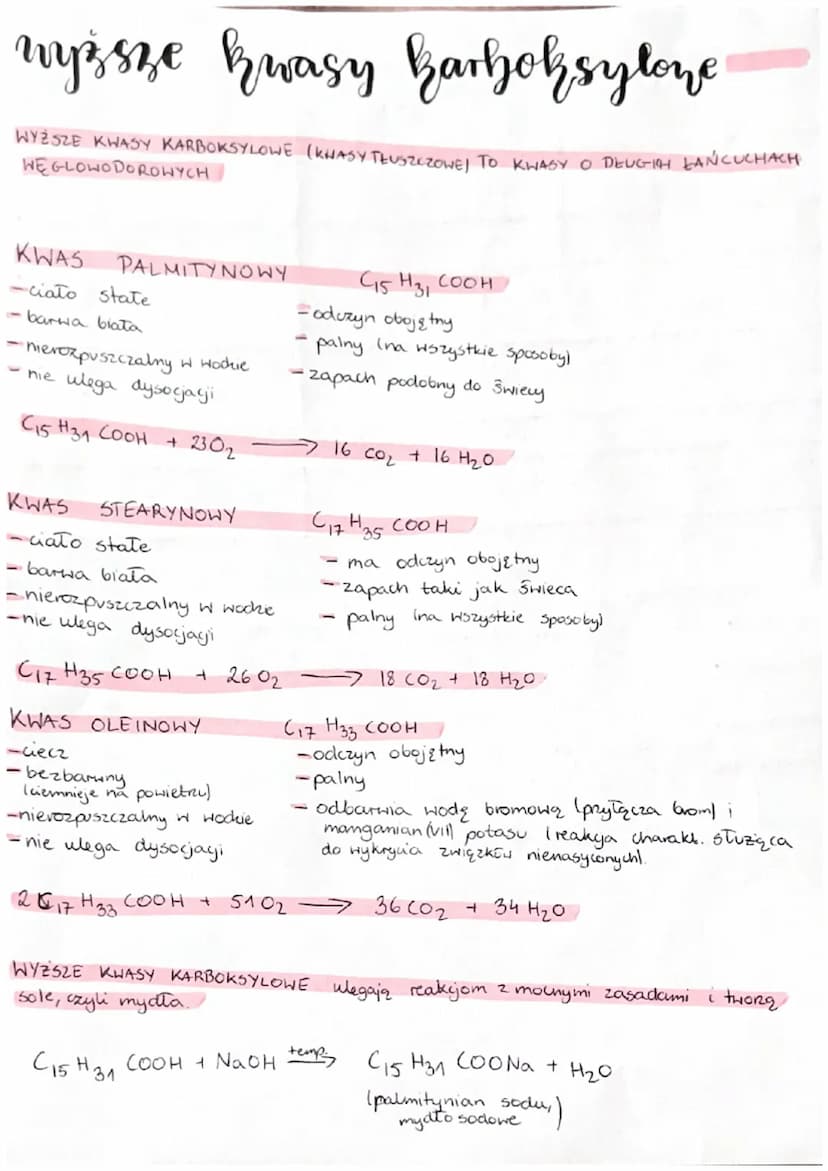 wyższe kwasy karboksylowe
WYŻSZE KWASY KARBOKSYLOWE (KWASY TŁUSZCZOWE) TO KWASY O DŁUGICH ŁAŃCUCHACH
WĘGLOWODOROWYCH
KWAS PALMITYNOWY C₁₅H₃₁COOH
- ciało stałe
- barwa biała
- nierozpuszczalny w wodzie
- nie ulega dysocjacji
- odczyn obojętny
- palny (na wszystkie sposoby)
- zapach podobny do świecy
C₁₅H₃₁COOH + 23O₂ ⟶ 16 CO₂ + 16 H₂O
KWAS STEARYNOWY C₁₇H₃₅COOH
- ciało stałe
- barwa biała
- nierozpuszczalny w wodzie
- nie ulega dysocjacji
- ma odczyn obojętny
- zapach taki jak świeca
- palny (na wszystkie sposoby)
C₁₇H₃₅COOH + 26O₂ ⟶ 18 CO₂ + 18 H₂O
KWAS OLEINOWY C₁₇H₃₃COOH
- ciecz
- bezbarwny
(ciemnieje na powietrzu)
- nierozpuszczalny w wodzie
- nie ulega dysocjacji
- odczyn obojętny
- palny
- odbarwia wodę bromową (przyłącza brom) i
manganian(VII) potasu (reakcja charakt. służąca
do wykrycia związków nienasyconych).
2C₁₇H₃₃COOH + 51O₂ ⟶ 36CO₂ + 34H₂O
WYŻSZE KWASY KARBOKSYLOWE ulegają reakcjom z mocnymi zasadami i tworzą
sole, czyli mydła.
C₁₅H₃₁COOH + NaOH temp.⟶ C₁₅H₃₁COONa + H₂O
(palmitynian sodu,
mydło sodowe)